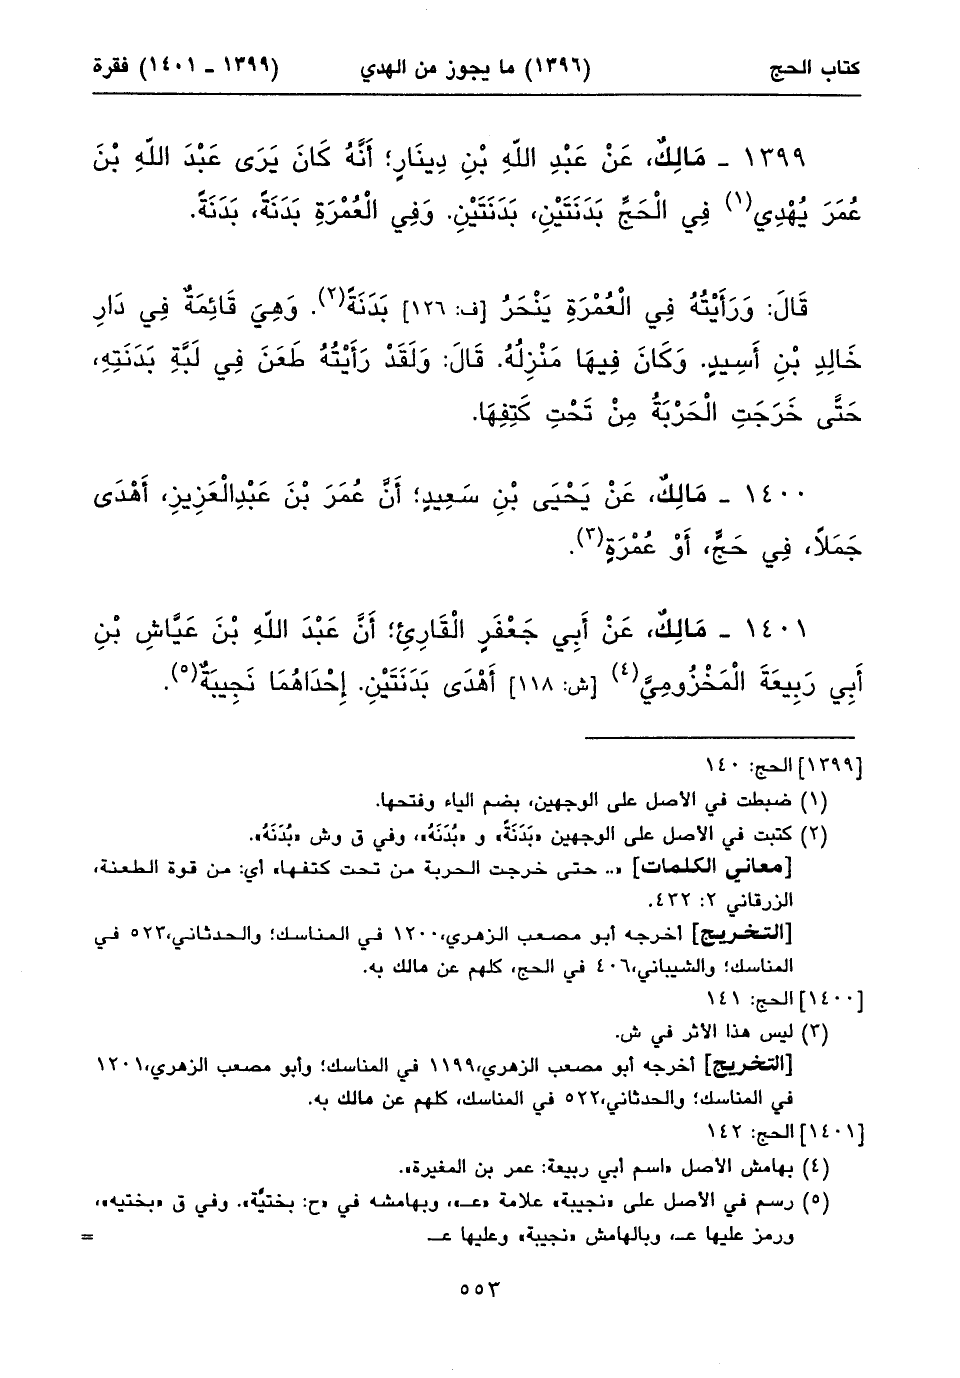 كتاب الحج (١٣٩٦) ما يجوز من الهدي (١٣٩٩ ـ ١٤٠١) فقرة
١٣٩٩ ـ مَالِكٌ، عَنْ عَبْدِ اللّهِ بْنِ دِينَارٍ؛ أَنَّهُ كَانَ يَرَى عَبْدَ اللهِ بْنَ
عُمَرَ يُهْدِي(١) فِي الْحَجِّ بَدَنَتَيْنِ، بَدَنَتَيْنِ. وَفِي الْعُمْرَةِ بَدَنَةً، بَدَنَةً.
قَالَ: وَرَأَيْتُهُ فِي الْعُمْرَةِ يَنْحَرُ [ف: ١٢٦] بَدَنَةً(٢). وَهِيَ قَائِمَةٌ فِي دَارِ
خَالِدِ بْنِ أَسِيدٍ. وَكَانَ فِيهَا مَنْزِلُهُ. قَالَ: وَلَقَدْ رَأَيْتُهُ طَعَنَ فِي لَبَّةِ بَدَنَتِهِ،
حَتَّى خَرَجَتِ الْحَرْبَةُ مِنْ تَحْتِ كَتِفِهَا.
١٤٠٠ ـ مَالِكٌ، عَنْ يَحْيَى بْنِ سَعِيدٍ؛ أَنَّ عُمَرَ بْنَ عَبْدِالْعَزِيزِ، أَهْدَى
جَمَلاً، فِي حَجٍّ، أَوْ عُمْرَةٍ(٣).
١٤٠١ ـ مَالِكٌ، عَنْ أَبِي جَعْفَرٍ الْقَارِئِ؛ أَنَّ عَبْدَ اللّهِ بْنَ عَيَّاشِ بْنِ
أَبِي رَبِيعَةَ الْمَخْزُومِيَّ(٤) [ش: ١١٨] أَهْدَى بَدَنَتَيْنِ. إِحْدَاهُمَا نَجِيبَةٌ(٥).
[١٣٩٩] الحج: ١٤٠
(١) ضبطت في الأصل على الوجهين، بضم الياء وفتحها.
(٢) كتبت في الأصل على الوجهين «بَدَنَةً» و «بُدَنَهُ»، وفي ق وش «بُدْنَهُ».
[معاني الكلمات] «.. حتى خرجت الحربة من تحت كتفها» أي: من قوة الطعنة،
الزرقاني ٢: ٤٣٢.
[التخريج] أخرجه أبو مصعب الزهري،١٢٠٠ في المناسك؛ والحدثاني،٥٢٣ في
المناسك؛ والشيباني،٤٠٦ في الحج، كلهم عن مالك به.
[١٤٠٠] الحج: ١٤١
(٣) ليس هذا الأثر في ش.
[التخريج] أخرجه أبو مصعب الزهري،١١٩٩ في المناسك؛ وأبو مصعب الزهري،١٢٠١
في المناسك؛ والحدثاني،٥٢٢ في المناسك، كلهم عن مالك به.
[١٤٠١] الحج: ١٤٢
(٤) بهامش الأصل «اسم أبي ربيعة: عمر بن المغيرة».
(٥) رسم في الأصل على «نجيبة» علامة «عـ»، وبهامشه في «ح: بختيَّة». وفي ق «بختيه»،
ورمز عليها عـ، وبالهامش «نجيبة» وعليها عـ =
٥٥٣